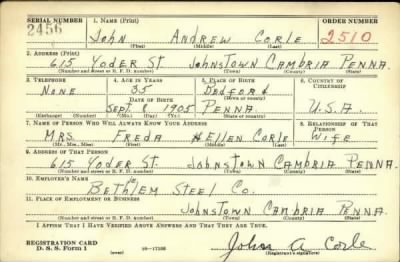 SERIAL NUMBER 1. NAME (Print) ORDER NUMBER
2456 John Andrew Corle 2510
(First) (Middle) (Last)
2. ADDRESS (Print)
615 Yoder St. Johnstown Cambria Penna.
(Number and street or R. F. D. number) (Town) (County) (State)
3. TELEPHONE 4. AGE IN YEARS 5. PLACE OF BIRTH 6. COUNTRY OF CITIZENSHIP
None 35 Bedford
DATE OF BIRTH (Town or county)
Sept 8 1905 Penna. U.S.A.
(Exchange) (Number) (Mo.) (Day) (Yr.) (State or country)
7. NAME OF PERSON WHO WILL ALWAYS KNOW YOUR ADDRESS 8. RELATIONSHIP OF THAT PERSON
Mrs. Freda Hellen Corle Wife
(Mr., Mrs., Miss) (First) (Middle) (Last)
9. ADDRESS OF THAT PERSON
615 Yoder St. Johnstown Cambria Penna.
(Number and street or R. F. D. number) (Town) (County) (State)
10. EMPLOYER'S NAME
Bethlem Steel Co.
11. PLACE OF EMPLOYMENT OR BUSINESS
Johnstown Cambria Penna.
(Number and street or R. F. D. number) (Town) (County) (State)
I AFFIRM THAT I HAVE VERIFIED ABOVE ANSWERS AND THAT THEY ARE TRUE.
REGISTRATION CARD
D. S. S. Form 1 16—17105 John A Corle
(Registrant's signature)